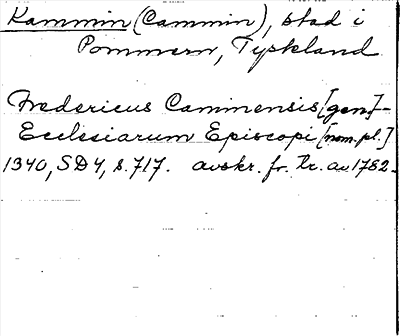 Kammin (Cammin), stad i
Pommern, Tyskland
Fredericus Caminensis [gen] -
Ecclesiarum Episcopi [nom.pl.]
1340, SD4, s. 717. avskr. fr. tr. av 1782.